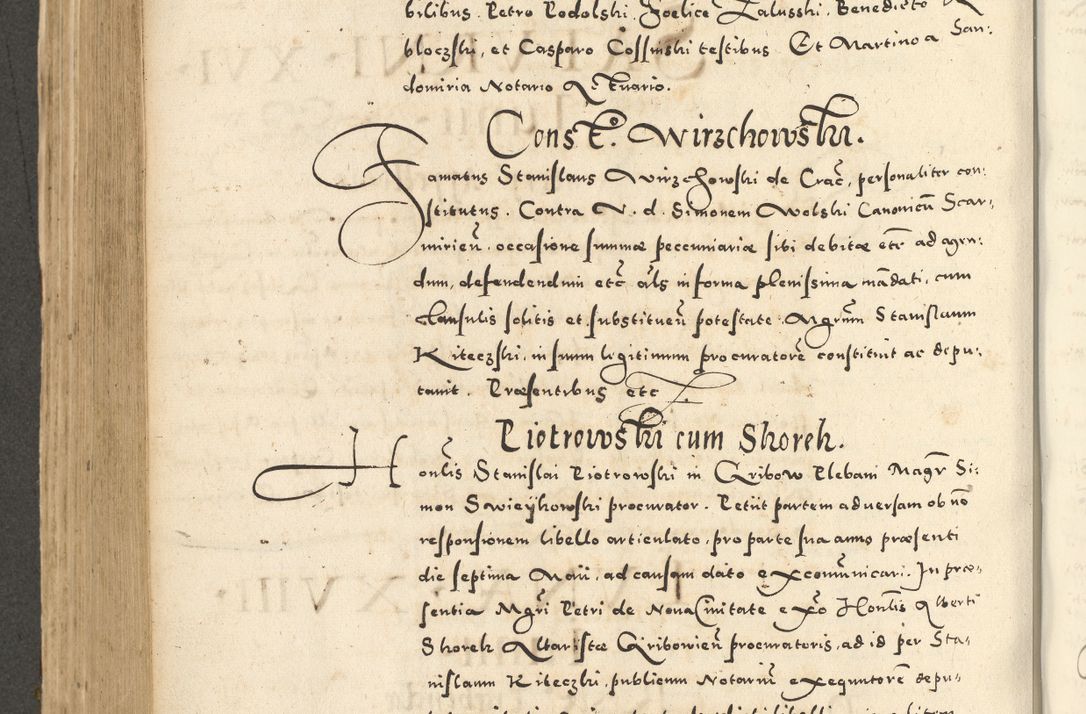 bilibus. Petro Podolski, Foelice Zalusski, Benedicto
bloczski, et Casparo Cossinski testibus Et Martino a San-
domiria Notario Actuario.
Const°. Wirzchowski.
Famatus Stanislaus Wirzchowski de Crac̃, personaliter con-
stitutus. Contra V. d. Simonem Wolski Canonicũ Scar-
mirieñ. occasione summæ pecuniariæ sibi debitæ etc̃ ad agen-
dum, defendendum etc̃ als in forma plenissima mãdati, cum
clausulis solitis et substituẽn potestate Mgrum Stanislaum
Kiteczski, in suum legitimum procuratorẽ constituit ac depu-
tavit. Præsentibus etc
Piotrowski cum Skorek.
Honlis Stanislai Piotrowski in Gribow Plebani Magr̃ Si-
mon Swieykowski procurator. Petiit partem adversam ob nõ
responsionem libello articulato, pro parte sua anno præsenti
die septima Maii, ad causam dato excom̃unicari. In præ-
sentia Mgri Petri de Nova Civitate ex̃o Honlis Alberti
Skorek Altaristæ Gribovieñ procuratoris, ad id per Sta-
nislaum Kiteczki, publicum Notariũ exequutorẽ depu-